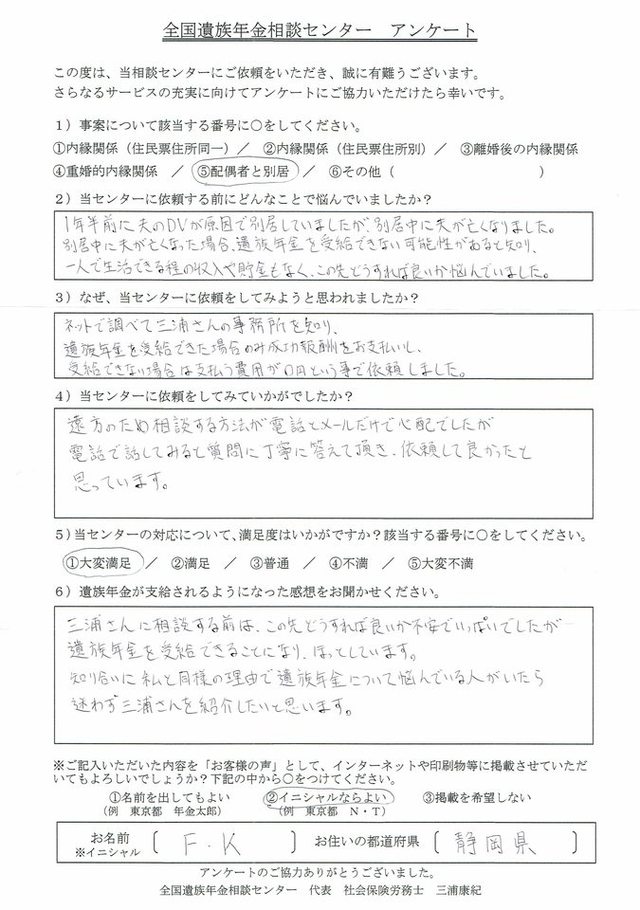 全国遺族年金相談センター　アンケート
この度は、当相談センターにご依頼をいただき、誠に有難うございます。
さらなるサービスの充実に向けてアンケートにご協力いただけたら幸いです。
1）事案について該当する番号に○をしてください。
①内縁関係（住民票住所同一）／　②内縁関係（住民票住所別）／　③離婚後の内縁関係
④重婚的内縁関係　／　⑤配偶者と別居　／　⑥その他（　　　　　　　　　）
2）当センターに依頼する前にどんなことで悩んでいましたか？
1年半前に夫のDVが原因で別居していましたが、別居中に夫が亡くなりました。
別居中に夫が亡くなった場合、遺族年金を受給できない可能性があると知り、
一人で生活できる程の収入や貯金もなく、この先どうすれば良いか悩んでいました。
3）なぜ、当センターに依頼をしてみようと思われましたか？
ネットで調べて三浦さんの事務所を知り、
遺族年金を受給できた場合のみ成功報酬をお支払いし、
受給できない場合は支払う費用が0円という事で依頼しました。
4）当センターに依頼をしてみていかがでしたか？
遠方のため相談する方法が電話とメールだけで心配でしたが
電話で話してみると質問に丁寧に答えて頂き、依頼して良かったと
思っています。
5）当センターの対応について、満足度はいかがですか？該当する番号に○をしてください。
①大変満足　／　②満足　／　③普通　／　④不満　／　⑤大変不満
6）遺族年金が支給されるようになった感想をお聞かせください。
三浦さんに相談する前は、この先どうすれば良いか不安でいっぱいでしたが
遺族年金を受給できることになり、ほっとしています。
知り合いに私と同様の理由で遺族年金について悩んでいる人がいたら
迷わず三浦さんを紹介したいと思います。
※ご記入いただいた内容を「お客様の声」として、インターネットや印刷物等に掲載させていただ
いてもよろしいでしょうか？下記の中から○をつけてください。
①名前を出してもよい　　②イニシャルならよい　　③掲載を希望しない
（例　東京都　年金太郎）　　（例　東京都　N・T）
お名前　〔　F．K　〕　お住いの都道府県　〔　静岡県　〕
※イニシャル
アンケートのご協力ありがとうございました。
全国遺族年金相談センター　代表　社会保険労務士　三浦康紀